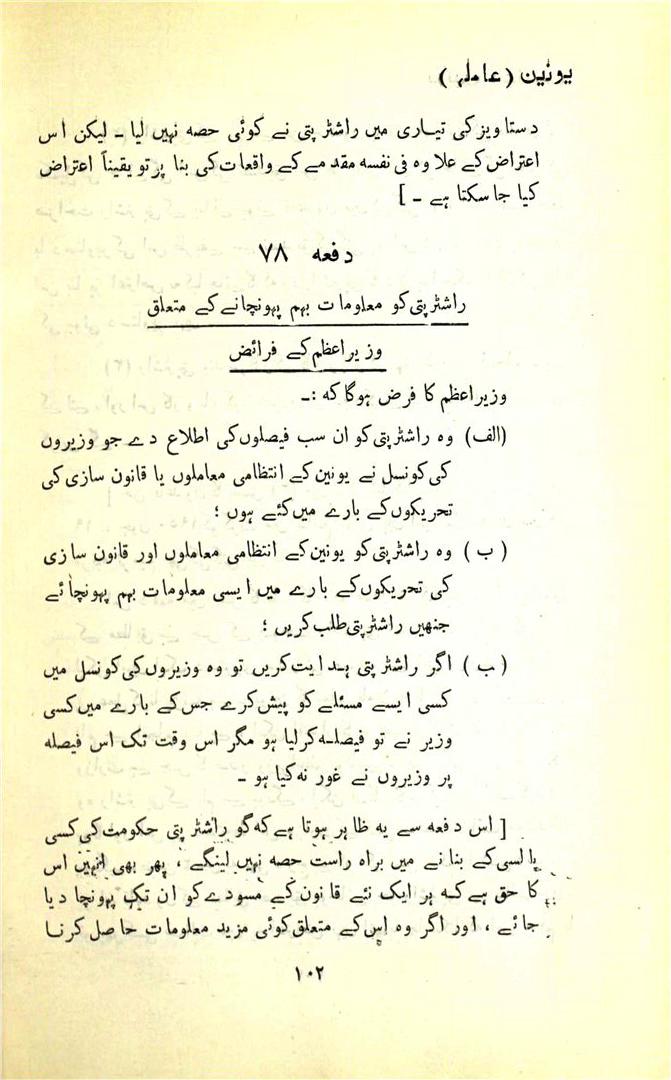 یونین (عاملہ)
دستاویز کی تیاری میں راشٹرپتی نے کوئی حصہ نہیں لیا ۔ لیکن اس
اعتراض کے علاوہ فی نفسہ مقدمے کے واقعات کی بنا پر تو یقیناً اعتراض
کیا جا سکتا ہے ۔ ]
دفعہ ۷۸
راشٹرپتی کو معلومات بہم پہونچانے کے متعلق
وزیراعظم کے فرائض
وزیراعظم کا فرض ہوگا کہ :۔
(الف) وہ راشٹرپتی کو ان سب فیصلوں کی اطلاع دے جو وزیروں
کی کونسل نے یونین کے انتظامی معاملوں یا قانون سازی کی
تحریکوں کے بارے میں کئے ہوں ؛
(ب) وہ راشٹرپتی کو یونین کے انتظامی معاملوں اور قانون سازی
کی تحریکوں کے بارے میں ایسی معلومات بہم پہونچائے
جنھیں راشٹرپتی طلب کریں ؛
(ب) اگر راشٹرپتی ہدایت کریں تو وہ وزیروں کی کونسل میں
کسی ایسے مسئلے کو پیش کرے جس کے بارے میں کسی
وزیر نے تو فیصلہ کر لیا ہو مگر اس وقت تک اس فیصلہ
پر وزیروں نے غور نہ کیا ہو ۔
[ اس دفعہ سے یہ ظاہر ہوتا ہے کہ گو راشٹرپتی حکومت کی کسی
پالسی کے بنانے میں براہ راست حصہ نہیں لینگے ، پھر بھی انہیں اس
کا حق ہے کہ ہر ایک نئے قانون کے مسودے کو ان تک پہونچا دیا
جائے ، اور اگر وہ اس کے متعلق کوئی مزید معلومات حاصل کرنا
۱۰۲